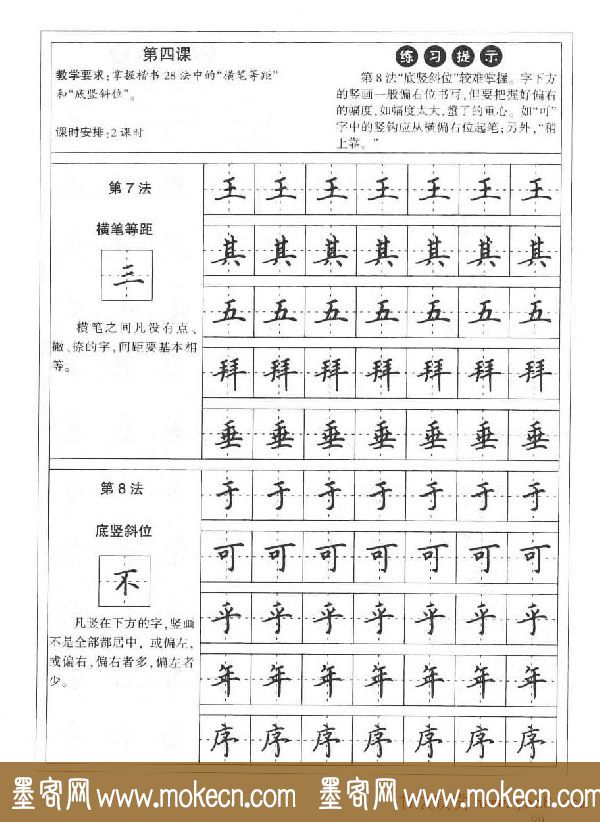 第四课
教学要求:掌握楷书28法中的“横笔等距”
和“底竖斜位”。
课时安排:2课时
练习提示
第8法“底竖斜位”较难掌握。字下方
的竖画一般偏右位书写,但要把握好偏右
的幅度,如幅度太大,
了的重心。如“可”
字中的竖钩应从横偏右位起笔;另外,“稍
上靠。”
第7法
横笔等距
三
横笔之间凡没有点、
撇、捺的字,间距要基本相
等。
王王王王王王王
其其其其其其其
五五五五五五五
拜拜拜拜拜拜拜
垂垂垂垂垂垂垂
第8法
底竖斜位
不
凡竖在下方的字,竖画
不是全部都居中,或偏左,
或偏右,偏右者多,偏左者
少。
于于于于于于于
可可可可可可可
乎乎乎乎乎乎乎
年年年年年年年
序序序序序序序
墨客网 www.mokecn.com 墨客网 www.mokecn.com